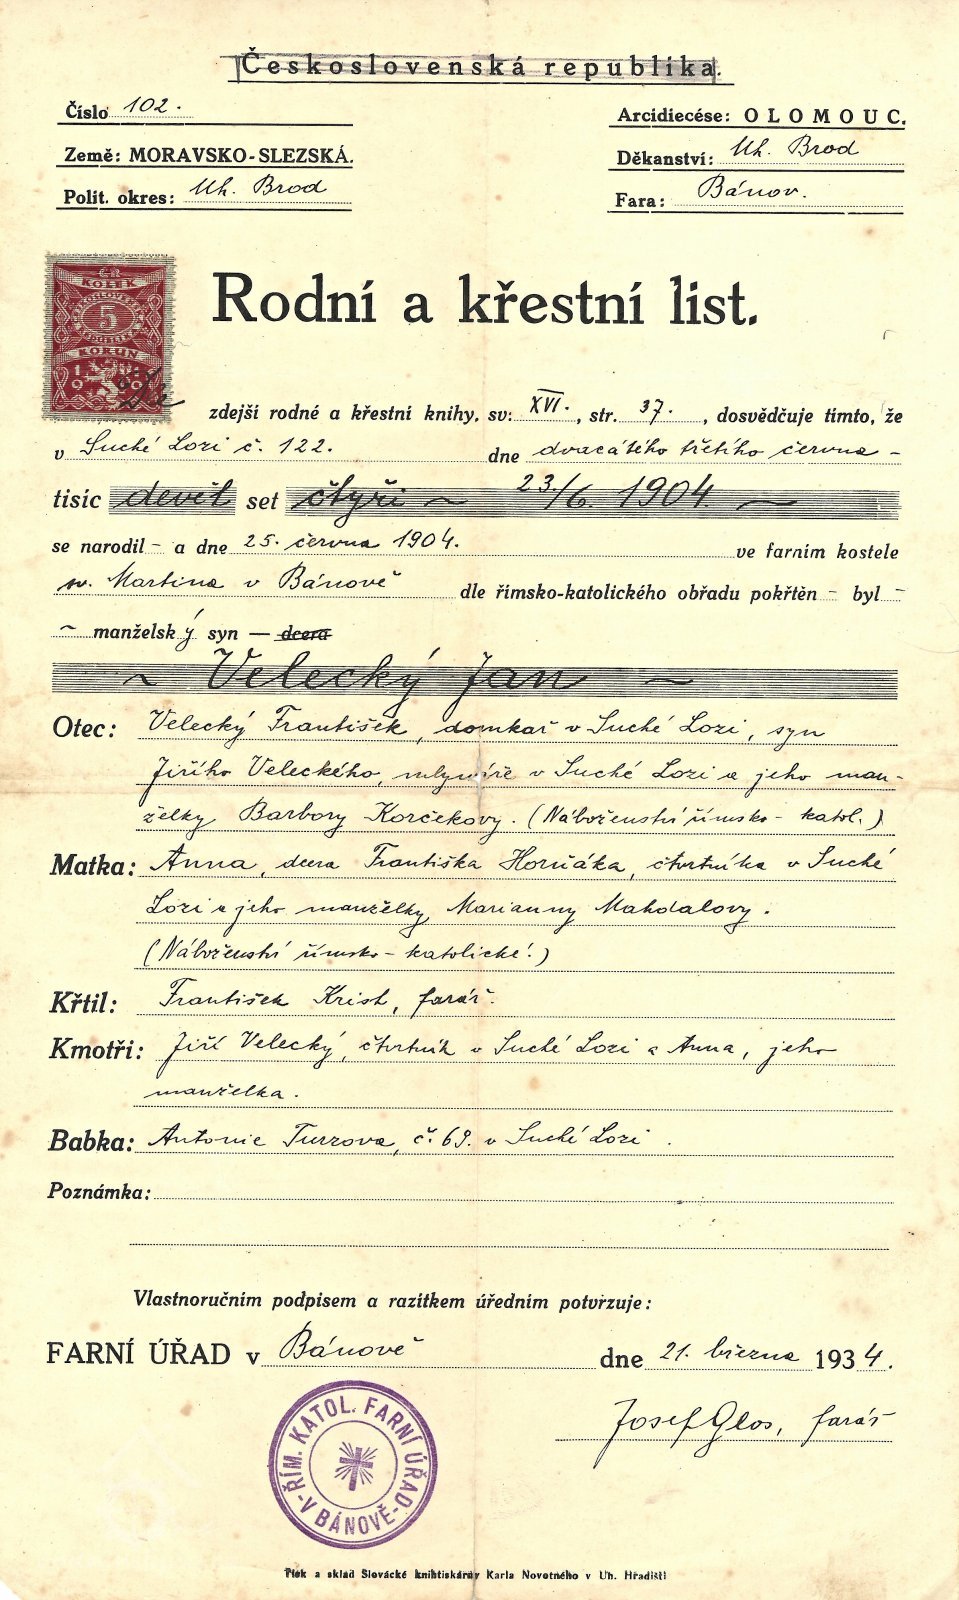 Československá republika.
Číslo 102.
Arcidiecése: OLOMOUC.
Země: MORAVSKO-SLEZSKÁ.
Děkanství: Uh. Brod
Polit. okres: Uh. Brod
Fara: Bánov.
ČR
KOLEK
5
KORUN
Rodní a křestní list.
zdejší rodné a křestní knihy, sv: XVI., str. 37., dosvědčuje tímto, že
v Suché Lozi č. 122. dne dvacátého třetího června –
tisíc devět set čtyři ~ 23/6. 1904. ~
se narodil – a dne 25. června 1904. ve farním kostele
sv. Martina v Bánově dle římsko-katolického obřadu pokřtěn – byl –
~ manželský syn — dcera
~ Velecký Jan ~
Otec: Velecký František, domkař v Suché Lozi, syn
Jiřího Veleckého, mlynáře v Suché Lozi a jeho man-
želky Barbory Korčekovy. (Náboženství římsko-katol.)
Matka: Anna, dcera Františka Horňáka, čtvrtníka v Suché
Lozi a jeho manželky Marianny Mahdalovy.
(Náboženství římsko-katolické.)
Křtil: František Krist, farář.
Kmotři: Jiří Velecký, čtvrtník v Suché Lozi a Anna, jeho
manželka.
Babka: Antonie Turzova, č. 69. v Suché Lozi.
Poznámka:
Vlastnoručním podpisem a razítkem úředním potvrzuje:
FARNÍ ÚŘAD v Bánově dne 21. března 1934.
Josef Glos, farář
ŘÍM. KATOL. FARNÍ ÚŘAD
V BÁNOVĚ
Tisk a sklad Slovácké knihtiskárny Karla Novotného v Uh. Hradišti